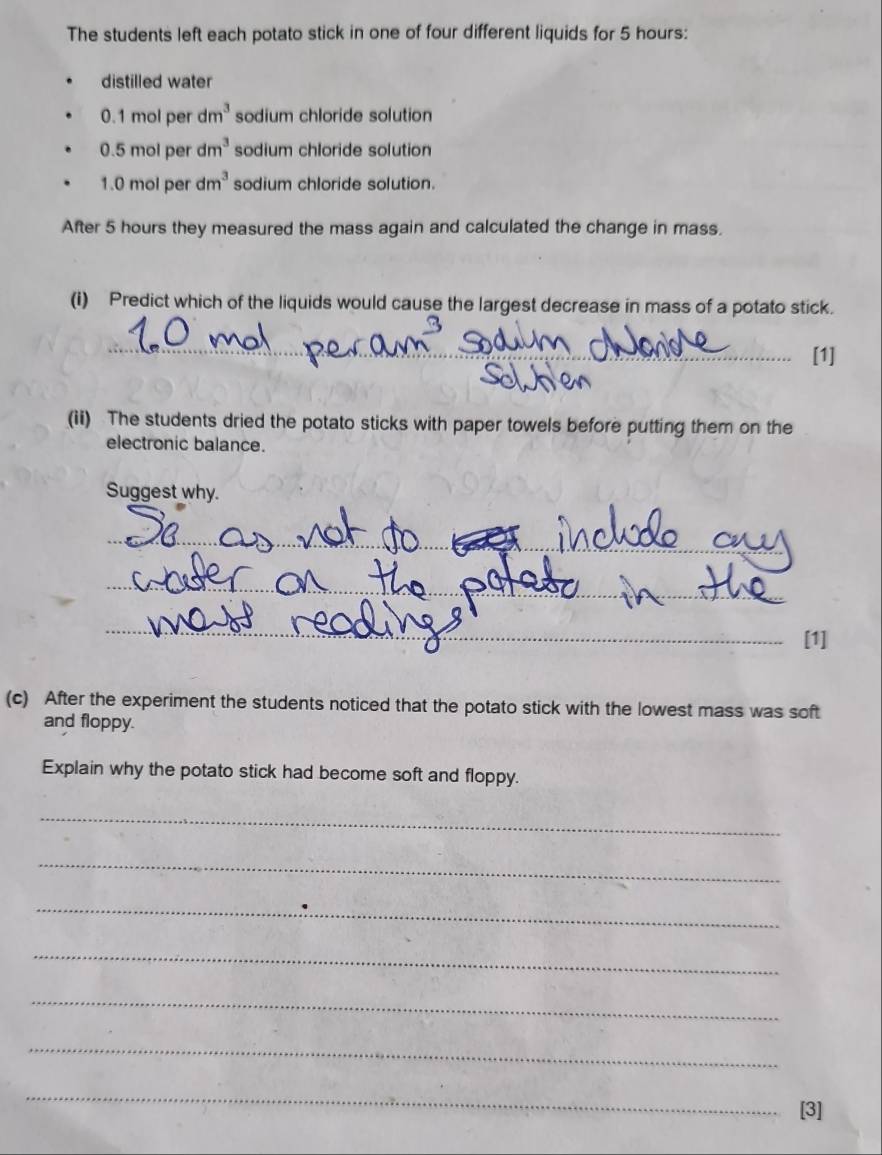 The students left each potato stick in one of four different liquids for 5 hours:
• distilled water
• 0.1 mol per dm³ sodium chloride solution
• 0.5 mol per dm³ sodium chloride solution
• 1.0 mol per dm³ sodium chloride solution.
After 5 hours they measured the mass again and calculated the change in mass.
(i) Predict which of the liquids would cause the largest decrease in mass of a potato stick.
1.0 mol per dm³ sodium chloride
[1]
Solution
(ii) The students dried the potato sticks with paper towels before putting them on the
electronic balance.
Suggest why.
So as not to include any
water on the potato in the
mass readings
[1]
(c) After the experiment the students noticed that the potato stick with the lowest mass was soft
and floppy.
Explain why the potato stick had become soft and floppy.
[3]